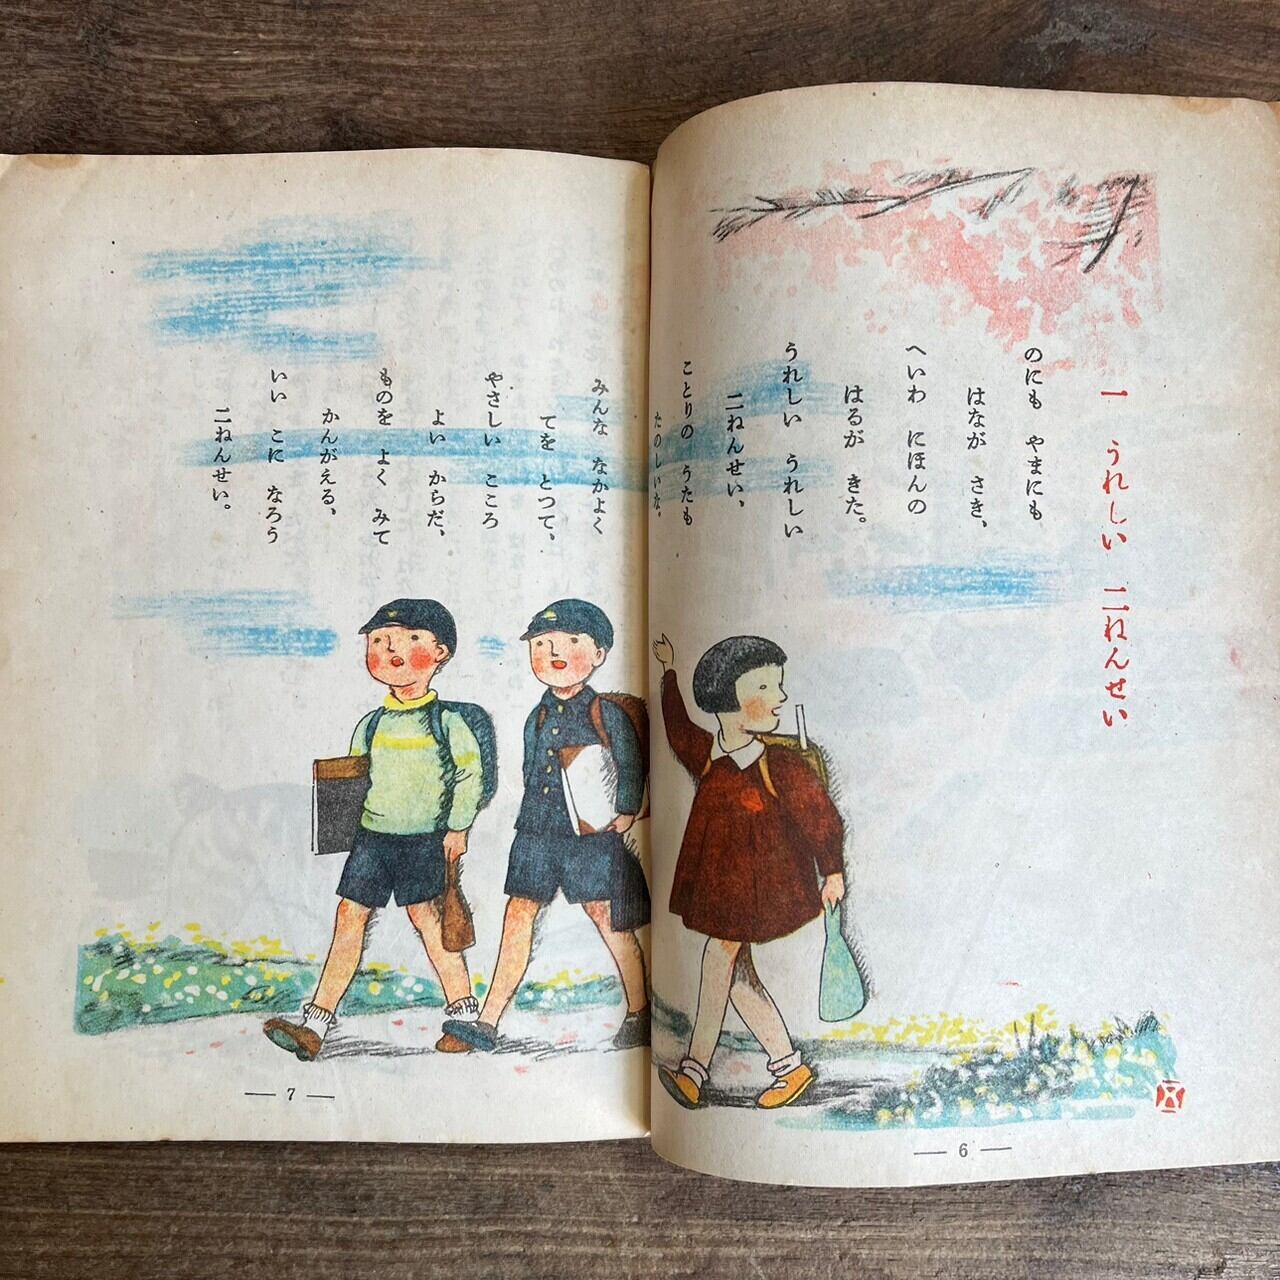 一 うれしい 二ねんせい
のにも やまにも
はなが さき、
へいわ にほんの
はるが きた。
うれしい うれしい
二ねんせい、
ことりの うたも
たのしいな。
— 6 —
みんな なかよく
てを とつて、
やさしい こころ
よい からだ、
ものを よく みて
かんがえる、
いい こに なろう
二ねんせい。
— 7 —